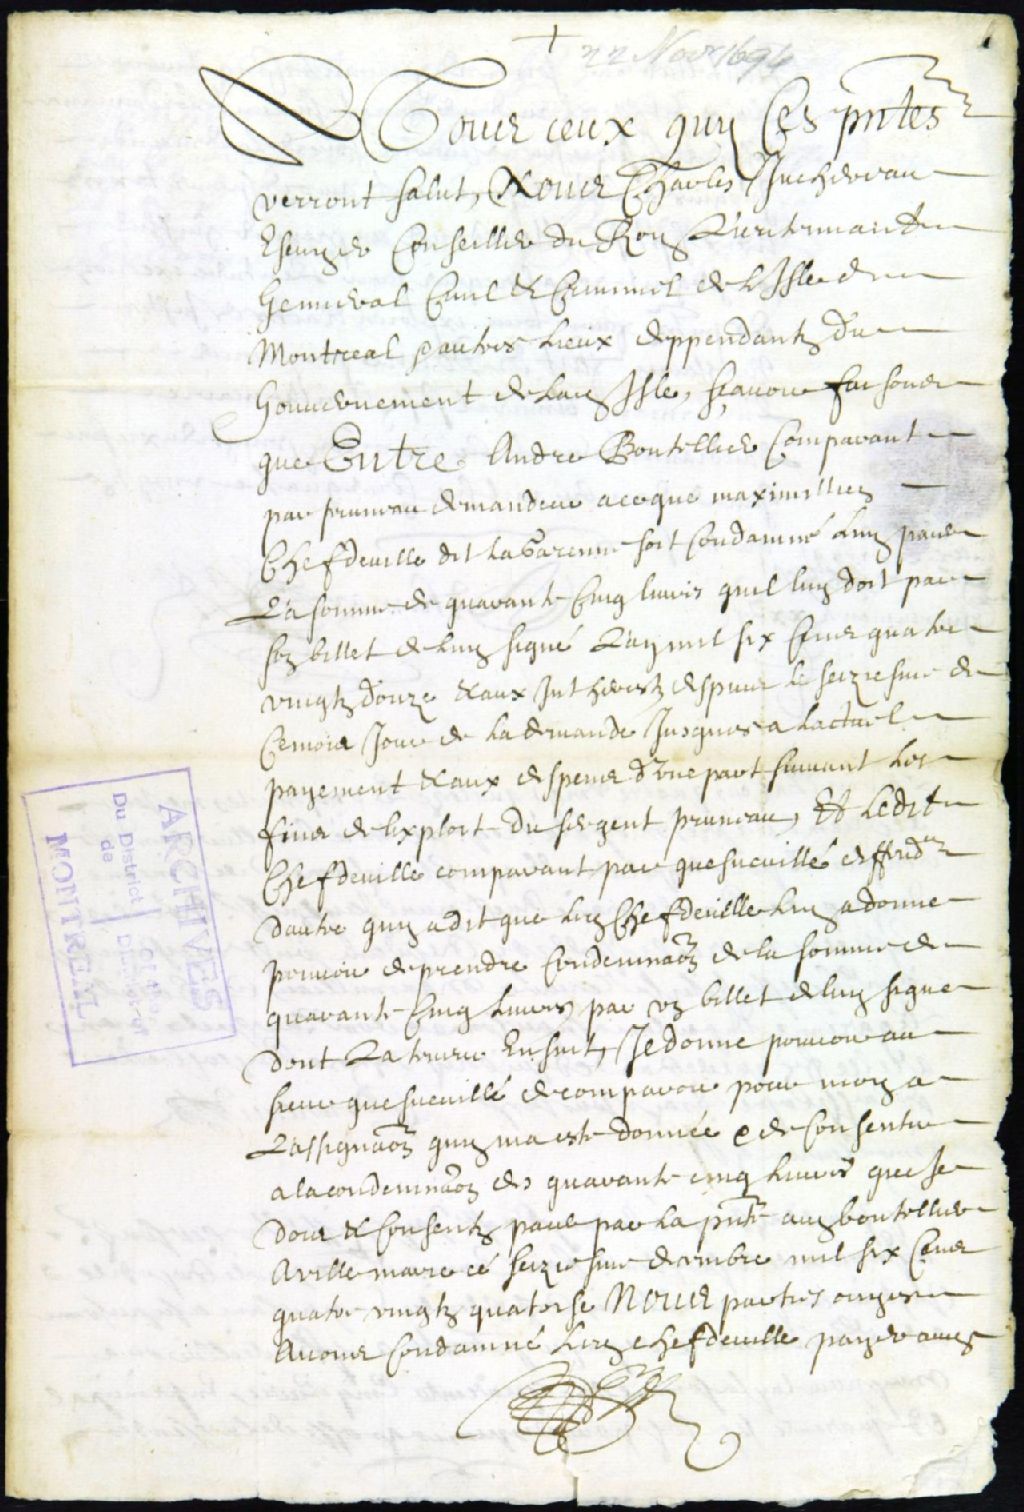 22 Novr 1694
A Tous ceux quy Ces pntes
verront salut, Nous Charles Juchereau
Escuyer Conseiller du Roy Lieutenant
General Civil & Criminel de L'Isle de
Montreal & autres Lieux deppendants du
Gouvernement de lad Isle, sçavoir faisons
que Entre Andre Boutellier Comparant
par pruneau demandeur a ce que maximillien
Chefdeuille dit La Garenne soit Condamné luy paier
La somme de quarante Cinq livres quil luy doit par
son billet de luy signé Lan mil six Cens quatre
vingts douze & aux Interests depuis le seiziesme de
Ce mois Jour de La demande Jusques a Lactuel
payement & aux despens d'une part suivant les
fins de lexploit du sergent pruneau, Et Ledit
Chefdeuille comparant par quesneville deffendr
dautre quy a dit que led Chefdeuille luy a donné
pouvoir de prendre Condemnaon de la somme de
quarante Cinq livres par un billet de luy signé
dont La teneur Ensuit, Je donne pouvoir au
sieur quesneville de comparoir pour moy a
Lassignaon quy ma esté donnée & de Consentir
a la condemnaon des quarante cinq livres que Je
dois & Consents paier par la pnte aud boutellier
A villemarie ce seiziesme novembre mil six Cens
quatre vingts quatorse Nous parties ouyes
Avons Condamné led chefdeuille payer aud
ARCHIVES
Du District
de
MONTREAL